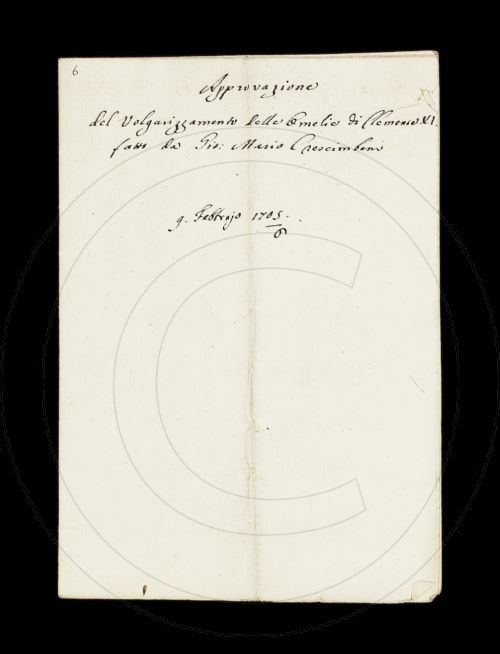 6
Approvazione
del Volgarizzamento delle Omelie di Clemente XI.
fatto da Gio: Mario Crescimbeni
9. Febbrajo 1705.
6
C